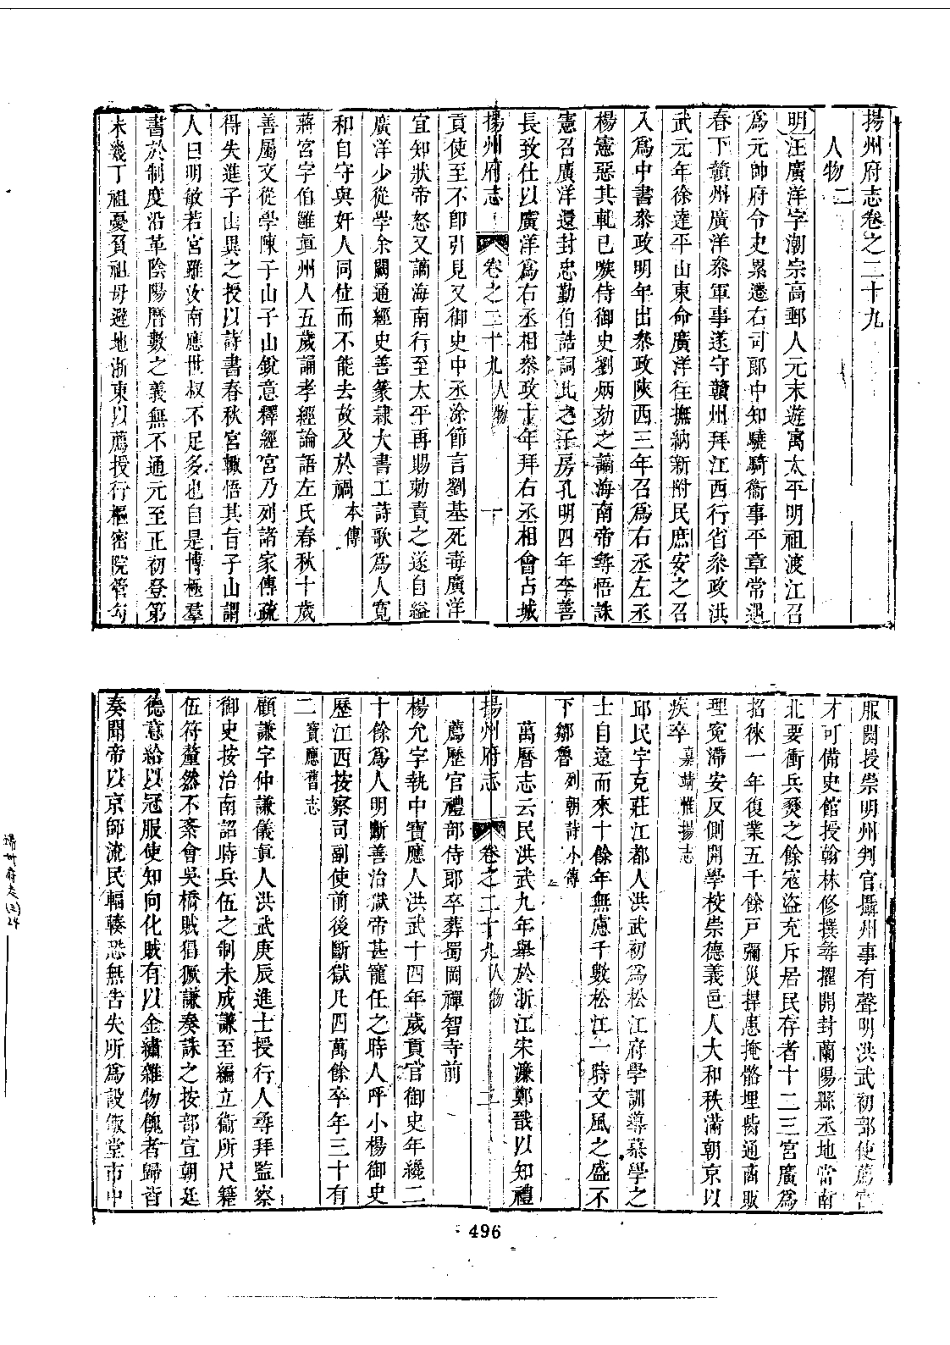 揚州府志卷之二十九
人物二
明汪廣洋字潮宗高郵人元末遊寓太平明祖渡江召
爲元帥府令史累遷右司郎中知驍騎衞事平章常遇
春下贛州廣洋叅軍事遂守贛州拜江西行省叅政洪
武元年徐達平山東命廣洋往撫納新附民庶安之召
入爲中書叅政明年出叅政陝西三年召爲右丞左丞
楊憲惡其軋已嗾侍御史劉炳劾之謫海南帝尋悟誅
憲召廣洋還封忠勤伯誥詞比之子房孔明四年李善
長致仕以廣洋爲右丞相叅政十年拜右丞相會占城
揚州府志 卷之二十九人物 一
貢使至不卽引見又御史中丞涂節言劉基死毒廣洋
宜知狀帝怒又謫海南行至太平再賜勅責之遂自縊
廣洋少從學余闕通經史善篆隸大書工詩歌爲人寬
和自守與奸人同位而不能去故及於禍本傳
蔣宮字伯雝眞州人五歲誦孝經論語左氏春秋十歲
善屬文從學陳子山子山銳意釋經宮乃列諸家傳疏
得失進子山異之授以詩書春秋宮輙悟其旨子山謂
人曰明敏若宮雖汝南應世叔不足多也自是博極羣
書於制度沿革陰陽曆數之義無不通元至正初登第
未幾丁祖憂負祖母避地浙東以薦授行樞密院管勾
服闋授崇明州判官攝州事有聲明洪武初部使薦宮
才可備史館授翰林修撰尋擢開封蘭陽縣丞地當南
北要衝兵燹之餘寇盜充斥居民存者十二三宮廣爲
招徠一年復業五千餘戸彌災捍患掩骼埋胔通商販
理冤滯安反側開學校崇德義邑人大和秩滿朝京以
疾卒嘉靖惟揚志
邱民字克莊江都人洪武初爲松江府學訓導慕學之
士自遠而來十餘年無慮千數松江一時文風之盛不
下鄒魯列朝詩小傳
萬曆志云民洪武九年舉於浙江宋濂鄭戩以知禮
揚州府志 卷之二十九人物 二
薦歷官禮部侍郎卒葬蜀岡禪智寺前
楊允字執中寶應人洪武十四年歲貢官御史年纔二
十餘爲人明斷善治獄帝甚寵任之時人呼小楊御史
歷江西按察司副使前後斷獄凡四萬餘卒年三十有
二寶應舊志
顧謙字仲謙儀眞人洪武庚辰進士授行人尋拜監察
御史按治南詔時兵伍之制未成謙至編立衞所尺籍
伍符釐然不紊會吳橋賊猖獗謙奏誅之按部宣朝廷
德意給以冠服使知向化賊有以金繡雜物餽者歸皆
奏聞帝以京師流民輻輳恐無告失所爲設飯堂市中
496